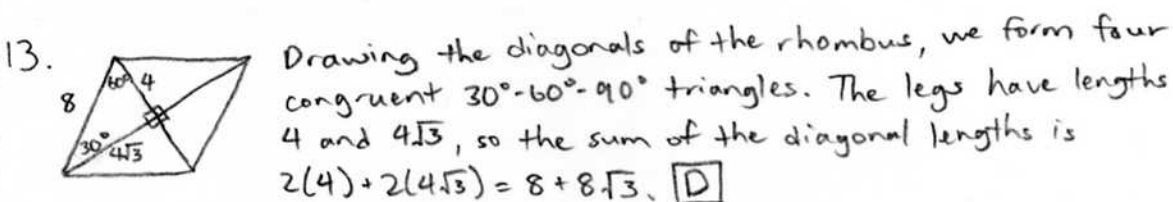 13.
Drawing the diagonals of the rhombus, we form four
60° 4
8
congruent 30°-60°-90° triangles. The legs have lengths
30° 4√3
4 and 4√3, so the sum of the diagonal lengths is
2(4) + 2(4√3) = 8 + 8√3. D